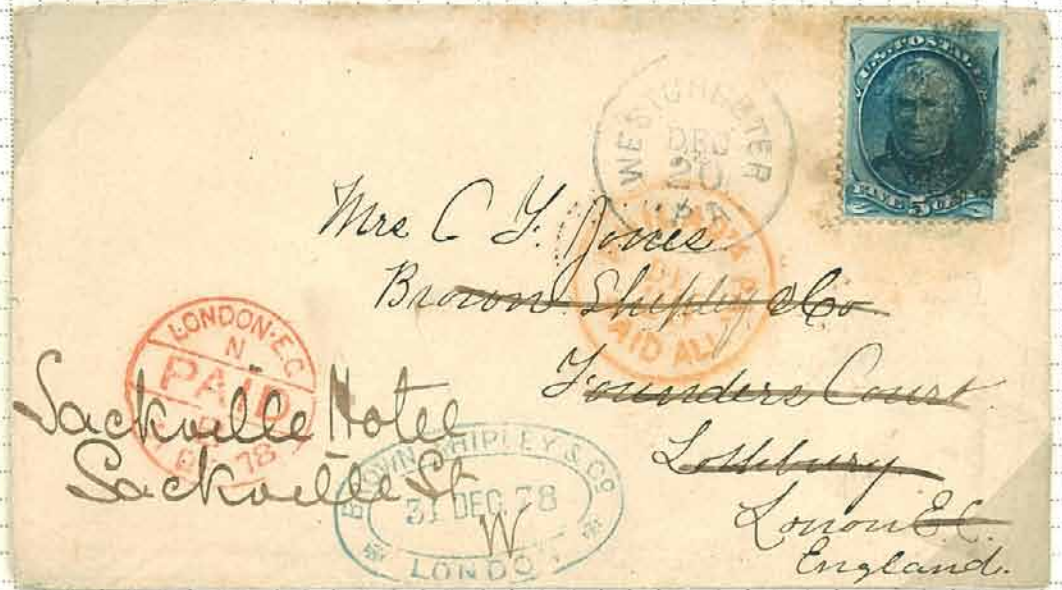 U.S. POSTAGE
FIVE CENTS
5
WESTCHESTER
DEC
20
PA
Mrs C Y. Jones
Brown Shipley & Co
Founders Court
Lothbury
Lonon E.C.
England.
PAID ALL
LONDON·E.C
N
PAID
78
Sackville Hotel
Sackville St
W
BROWN SHIPLEY & Co
31 DEC. 78
LONDON